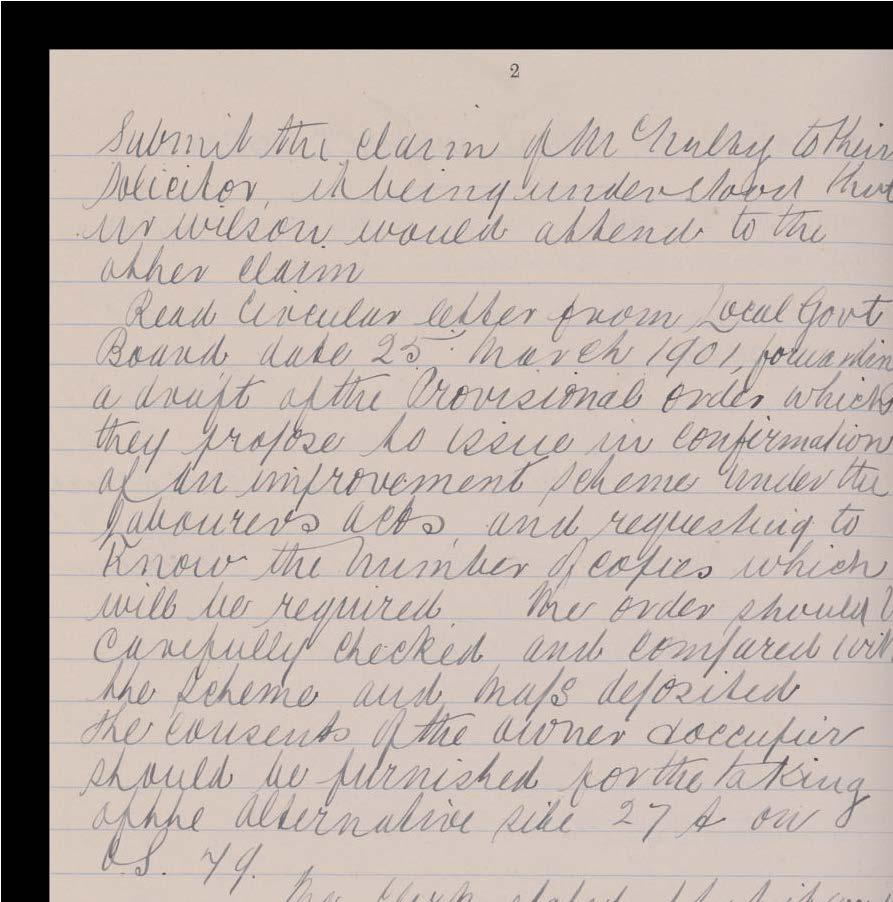 2
Submit the claim of Mr McNulty to their
Solicitor, it being understood that
Mr Wilson would attend to the
other claim
Read Circular letter from Local Govt
Board date 25 March 1901, forwardin
a draft of the Provisional order which
they propose to issue in confirmation
of an improvement scheme under the
Labourers acts, and requesting to
Know the number of copies which
will be required The order should
Carefully checked and compared wit
the scheme and maps deposited
the consents of the owner & occupier
should be furnished for the taking
of the alternative site 27 A on
O.S. 79.
The Clerk stated that it